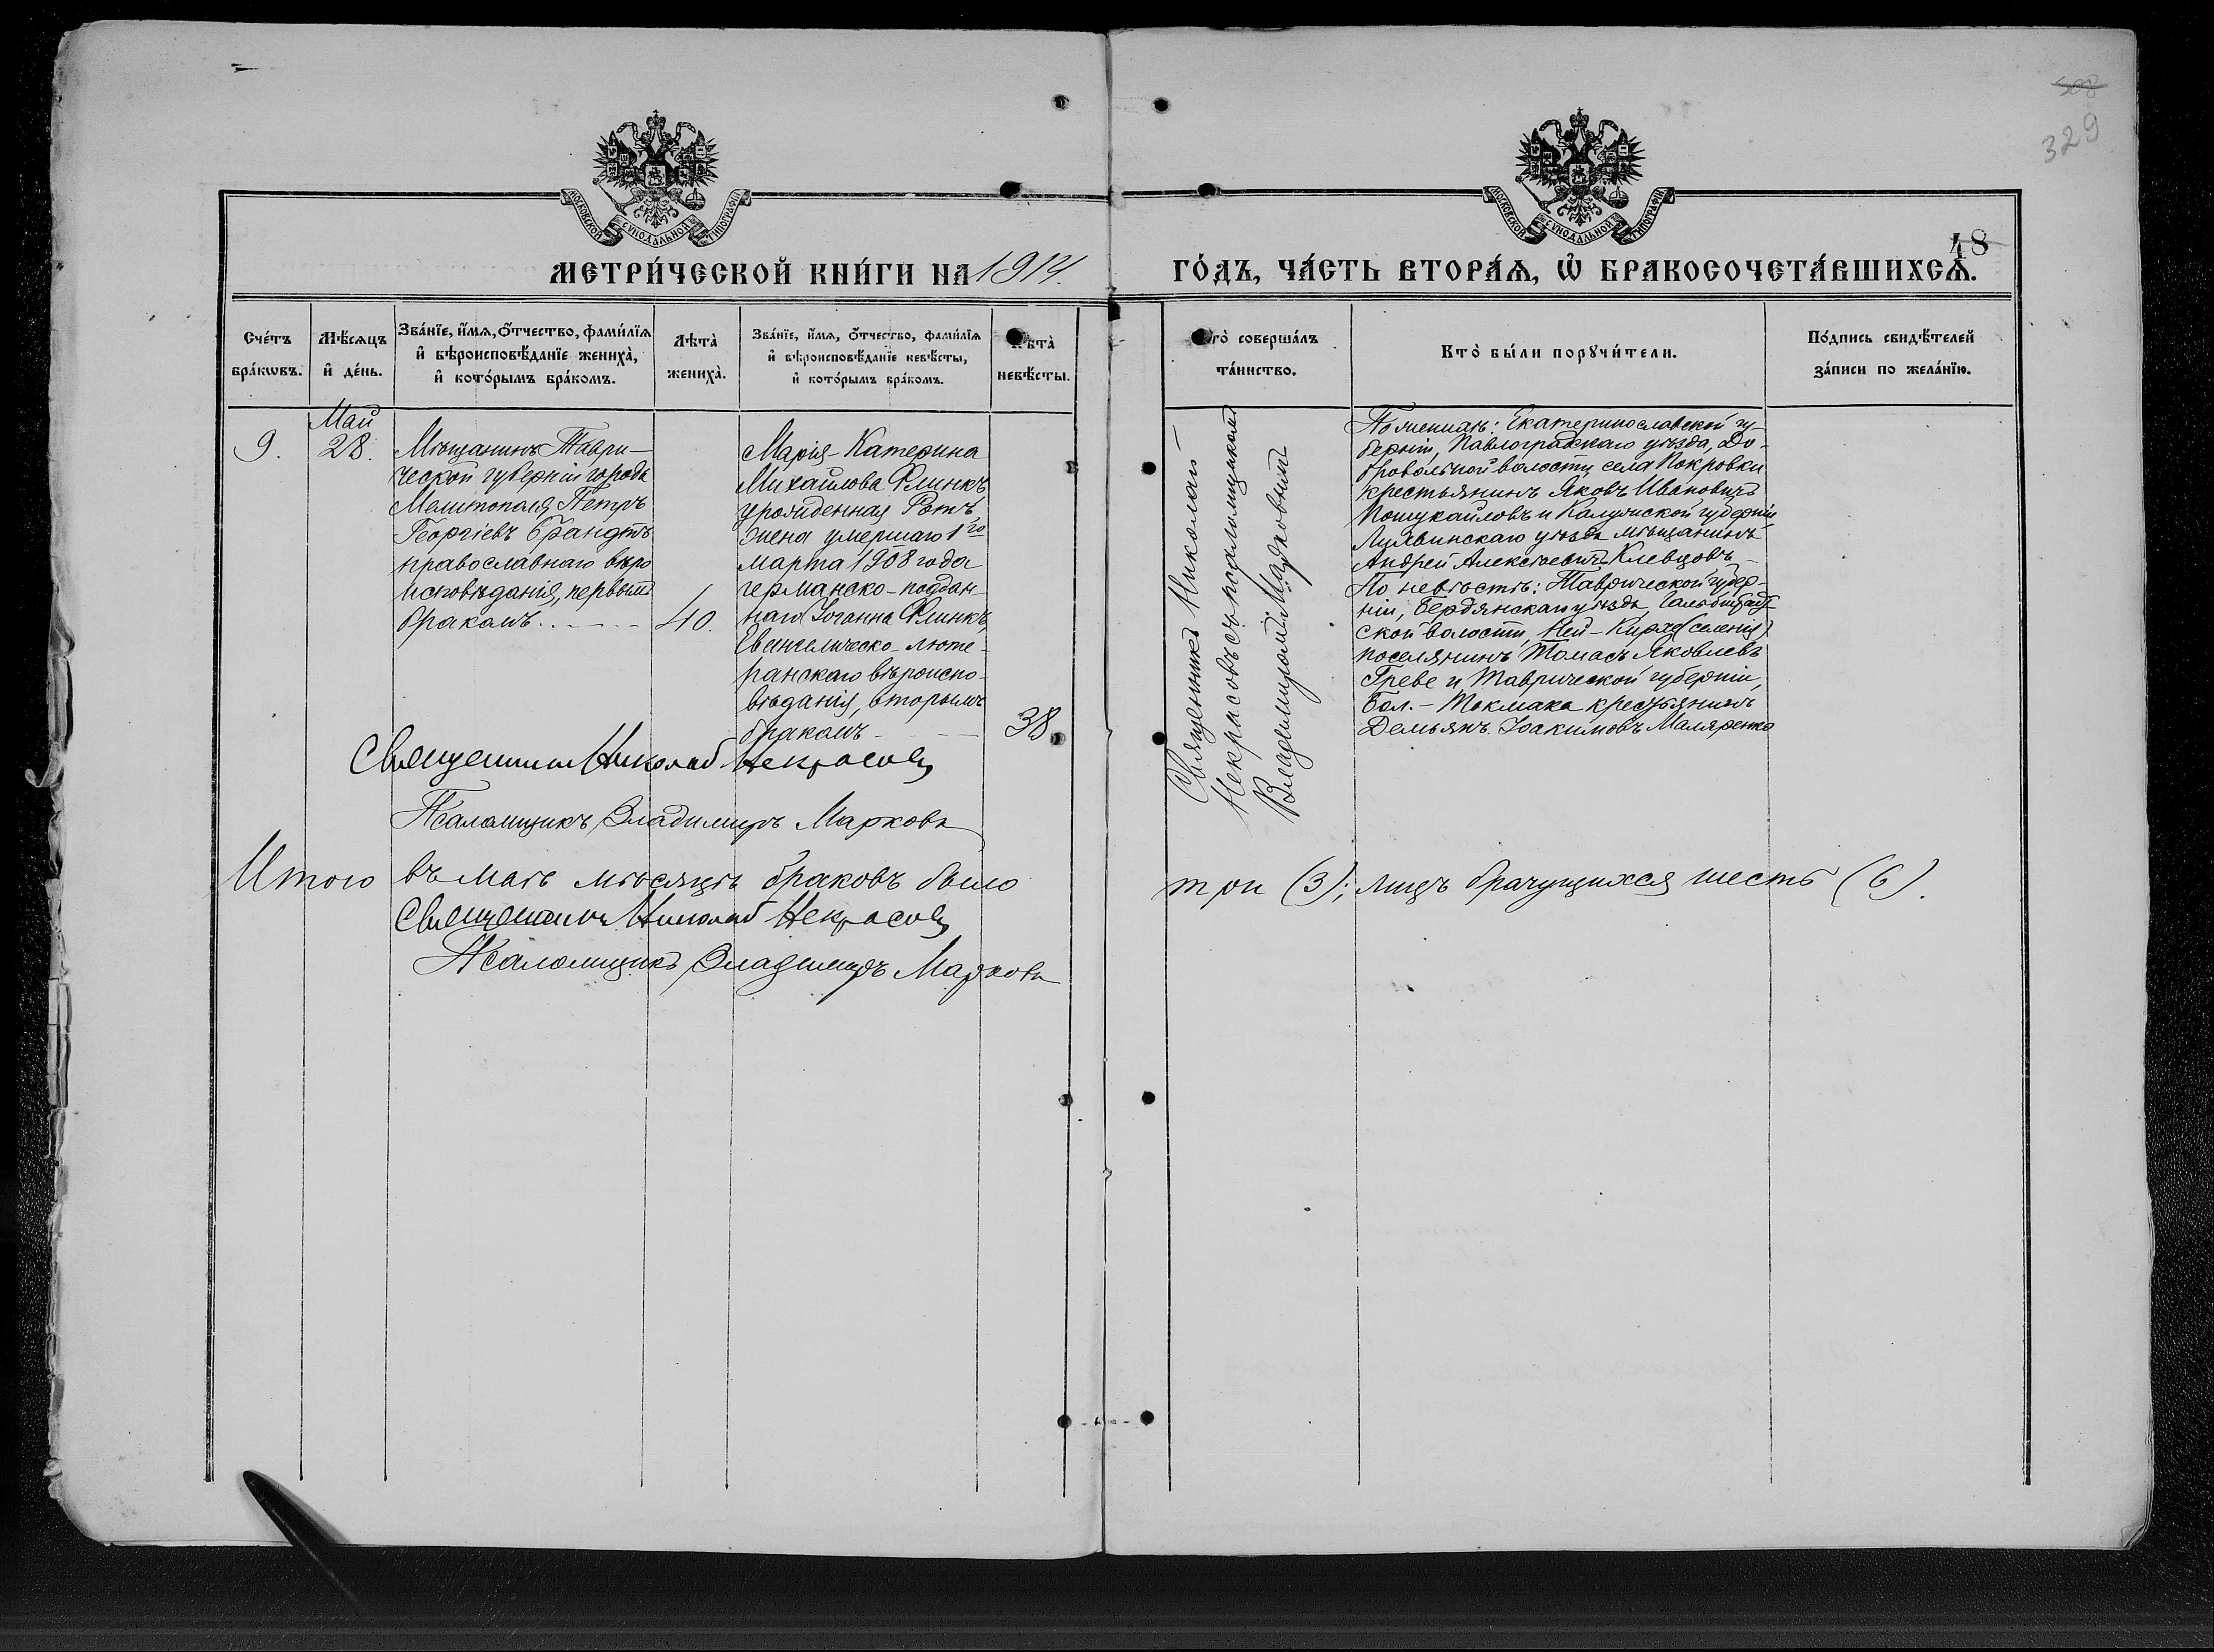 508
329
МОСКОВСКОЙ СѴНОДАЛЬНОЙ ТИПОГРАФІИ
МОСКОВСКОЙ СѴНОДАЛЬНОЙ ТИПОГРАФІИ
48
МЕТРИ́ЧЕСКОЙ КНИ́ГИ НА 1914.
ГО́ДЪ, ЧА́СТЬ ВТОРА́Ѧ, Ѽ БРАКОСОЧЕТА́ВШИХСѦ.
Сче́тъ
бра́кѡвъ.
Мѣ́сѧцъ
и҆ де́нь.
Зва́нїе, и҆́мѧ, ѻ҆́тчество, фами́лїѧ
и҆ вѣроисповѣ́данїе жениха̀,
и҆ кото́рымъ бра́комъ.
Лѣта̀
жениха̀.
Зва́нїе, и҆́мѧ, ѻ҆́тчество, фами́лїѧ
и҆ вѣроисповѣ́данїе невѣ́сты,
и҆ кото́рымъ бра́комъ.
Лѣта̀
невѣ́сты.
Кто̀ соверша́лъ
та́инство.
Кто̀ бы́ли порꙋчи́тели.
По́дпись свидѣ́телей
за́писи по жела́нїю.
9.
Май
28.
Мѣщанинъ Таври-
ческой губерніи города
Мелитополя Петръ
Георгіевъ Брандтъ
православнаго вѣро
исповѣданія, первымъ
бракомъ.
40.
Марія-Катерина
Михайлова Флинкъ
урожденная Ротъ,
жена умершаго 1го
марта 1908 года
германско-поддан-
наго Іоганна Флинкъ,
Евангелическо-люте-
ранскаго вѣроиспо-
вѣданія, вторымъ
бракомъ
38.
Священникъ Николай
Некрасовъ съ псаломщикомъ
Владимиромъ Марковымъ
По женихѣ: Екатеринославской гу-
берніи, Павлоградскаго уѣзда, До-
бровольной волости села Покровки
крестьянинъ Яковъ Ивановичъ
Пошукайловъ и Калужской губерніи
Лихвинскаго уѣзда мѣщанинъ
Андрей Алексѣевичъ Клевцовъ
По невѣстѣ: Таврической губер-
ніи, Бердянскаго уѣзда, Гальбштадт-
ской волости, Ней-Кирхе (селенія)
поселянинъ Томасъ Яковлевъ
Греве и Таврической губерніи,
Бол.-Токмака крестьянинъ
Демьянъ Іоакимовъ Маляренко
Священникъ Николай Некрасовъ
Псаломщикъ Владимиръ Марковъ
Итого въ маѣ мѣсяцѣ браковъ было три (3); лицъ брачущихся шесть (6).
Священникъ Николай Некрасовъ
Псаломщикъ Владимиръ Марковъ